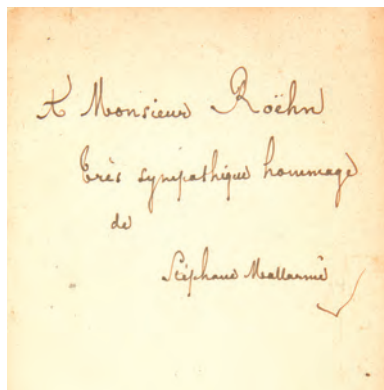 A Monsieur Roëhn
très sympathique hommage
de
Stéphane Mallarmé